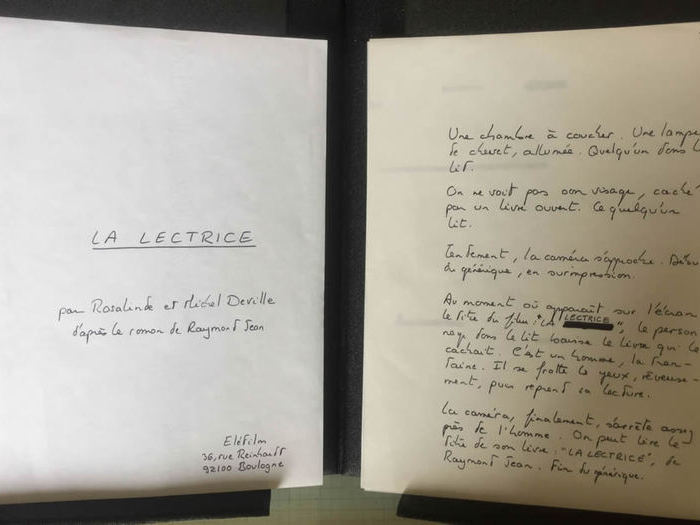 LA LECTRICE
par Rosalinde et Michel Deville
d'après le roman de Raymond Jean
Eléfilm
36, rue Reinhardt
92100 Boulogne
Une chambre à coucher. Une lampe
de chevet, allumée. Quelqu'un dans l
lit.
On ne voit pas son visage, caché
par un livre ouvert. Ce quelqu'un
lit.
Lentement, la caméra s'approche. Débu
du générique, en surimpression.
Au moment où apparaît sur l'écran
le titre du film : "LA LECTRICE", le person
nage dans le lit baisse le livre qui le
cachait. C'est un homme, la tren-
taine. Il se frotte les yeux, rêveuse-
ment, puis reprend sa lecture.
La caméra, finalement, s'arrête assez
près de l'homme. On peut lire le
titre de son livre : "LA LECTRICE", de
Raymond Jean. Fin du générique.